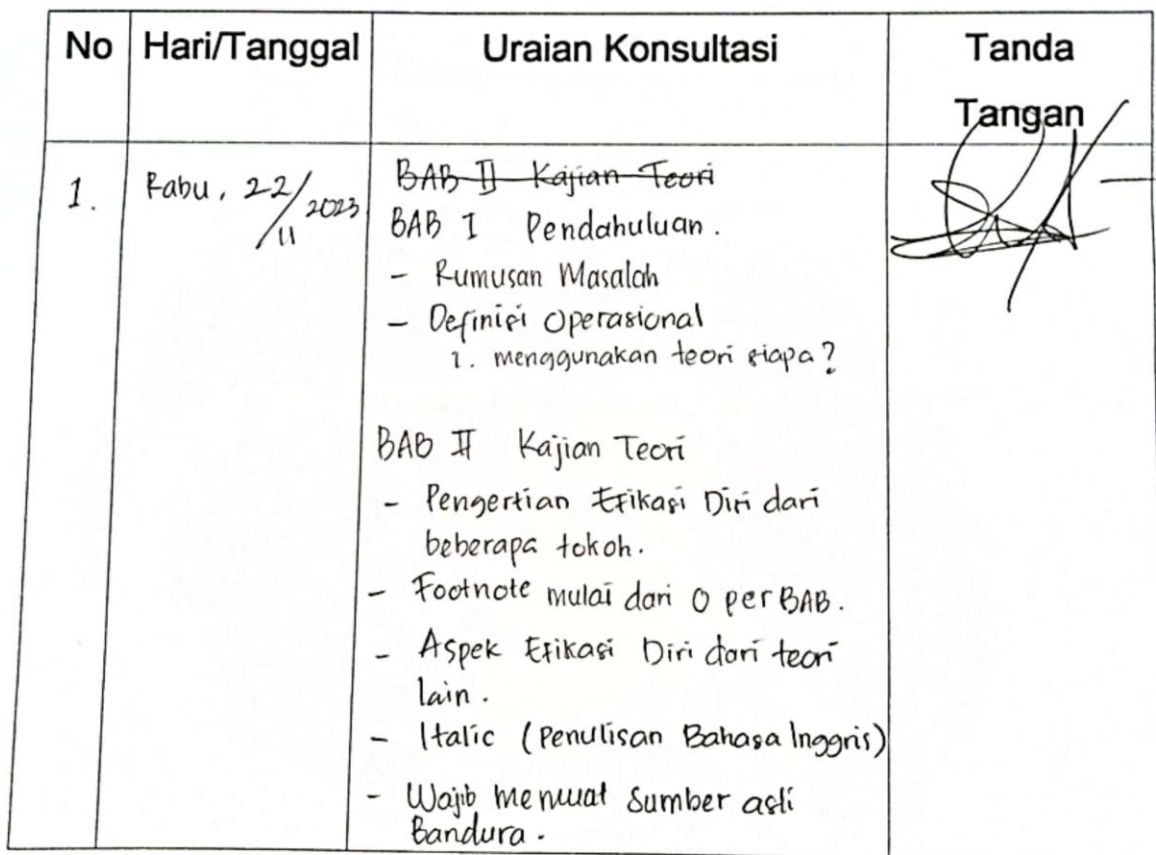 No Hari/Tanggal Uraian Konsultasi Tanda
Tangan
1. Rabu, 22/11 2023
BAB II Kajian Teori
BAB I Pendahuluan.
- Rumusan Masalah
- Definisi Operasional
1. menggunakan teori siapa?
BAB II Kajian Teori
- Pengertian Efikasi Diri dari
beberapa tokoh.
- Footnote mulai dari 0 per BAB.
- Aspek Efikasi Diri dari teori
lain.
- Italic (Penulisan Bahasa Inggris)
- Wajib memuat Sumber asli
Bandura.